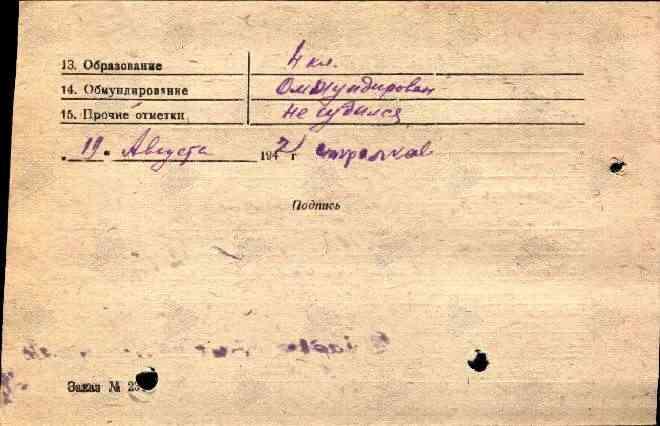 13. Образование 4 кл.
14. Обмундирование Омундирован
15. Прочие отметки не судился
„19“ Августа 1942 г
Подпись
Заказ № 23